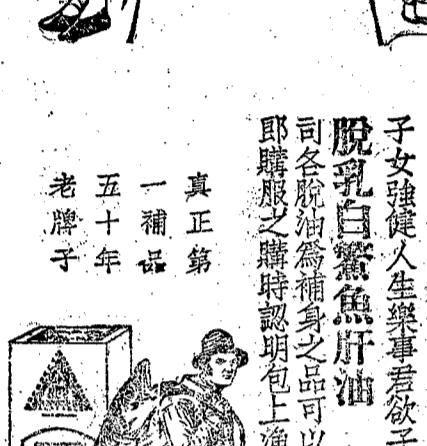 子女強健人生樂事君欲子
脫乳白鰵魚肝油
司各脫油爲補身之品可以
郎購服之購時認明包上漁
真正第
一補品
五十年
老牌子